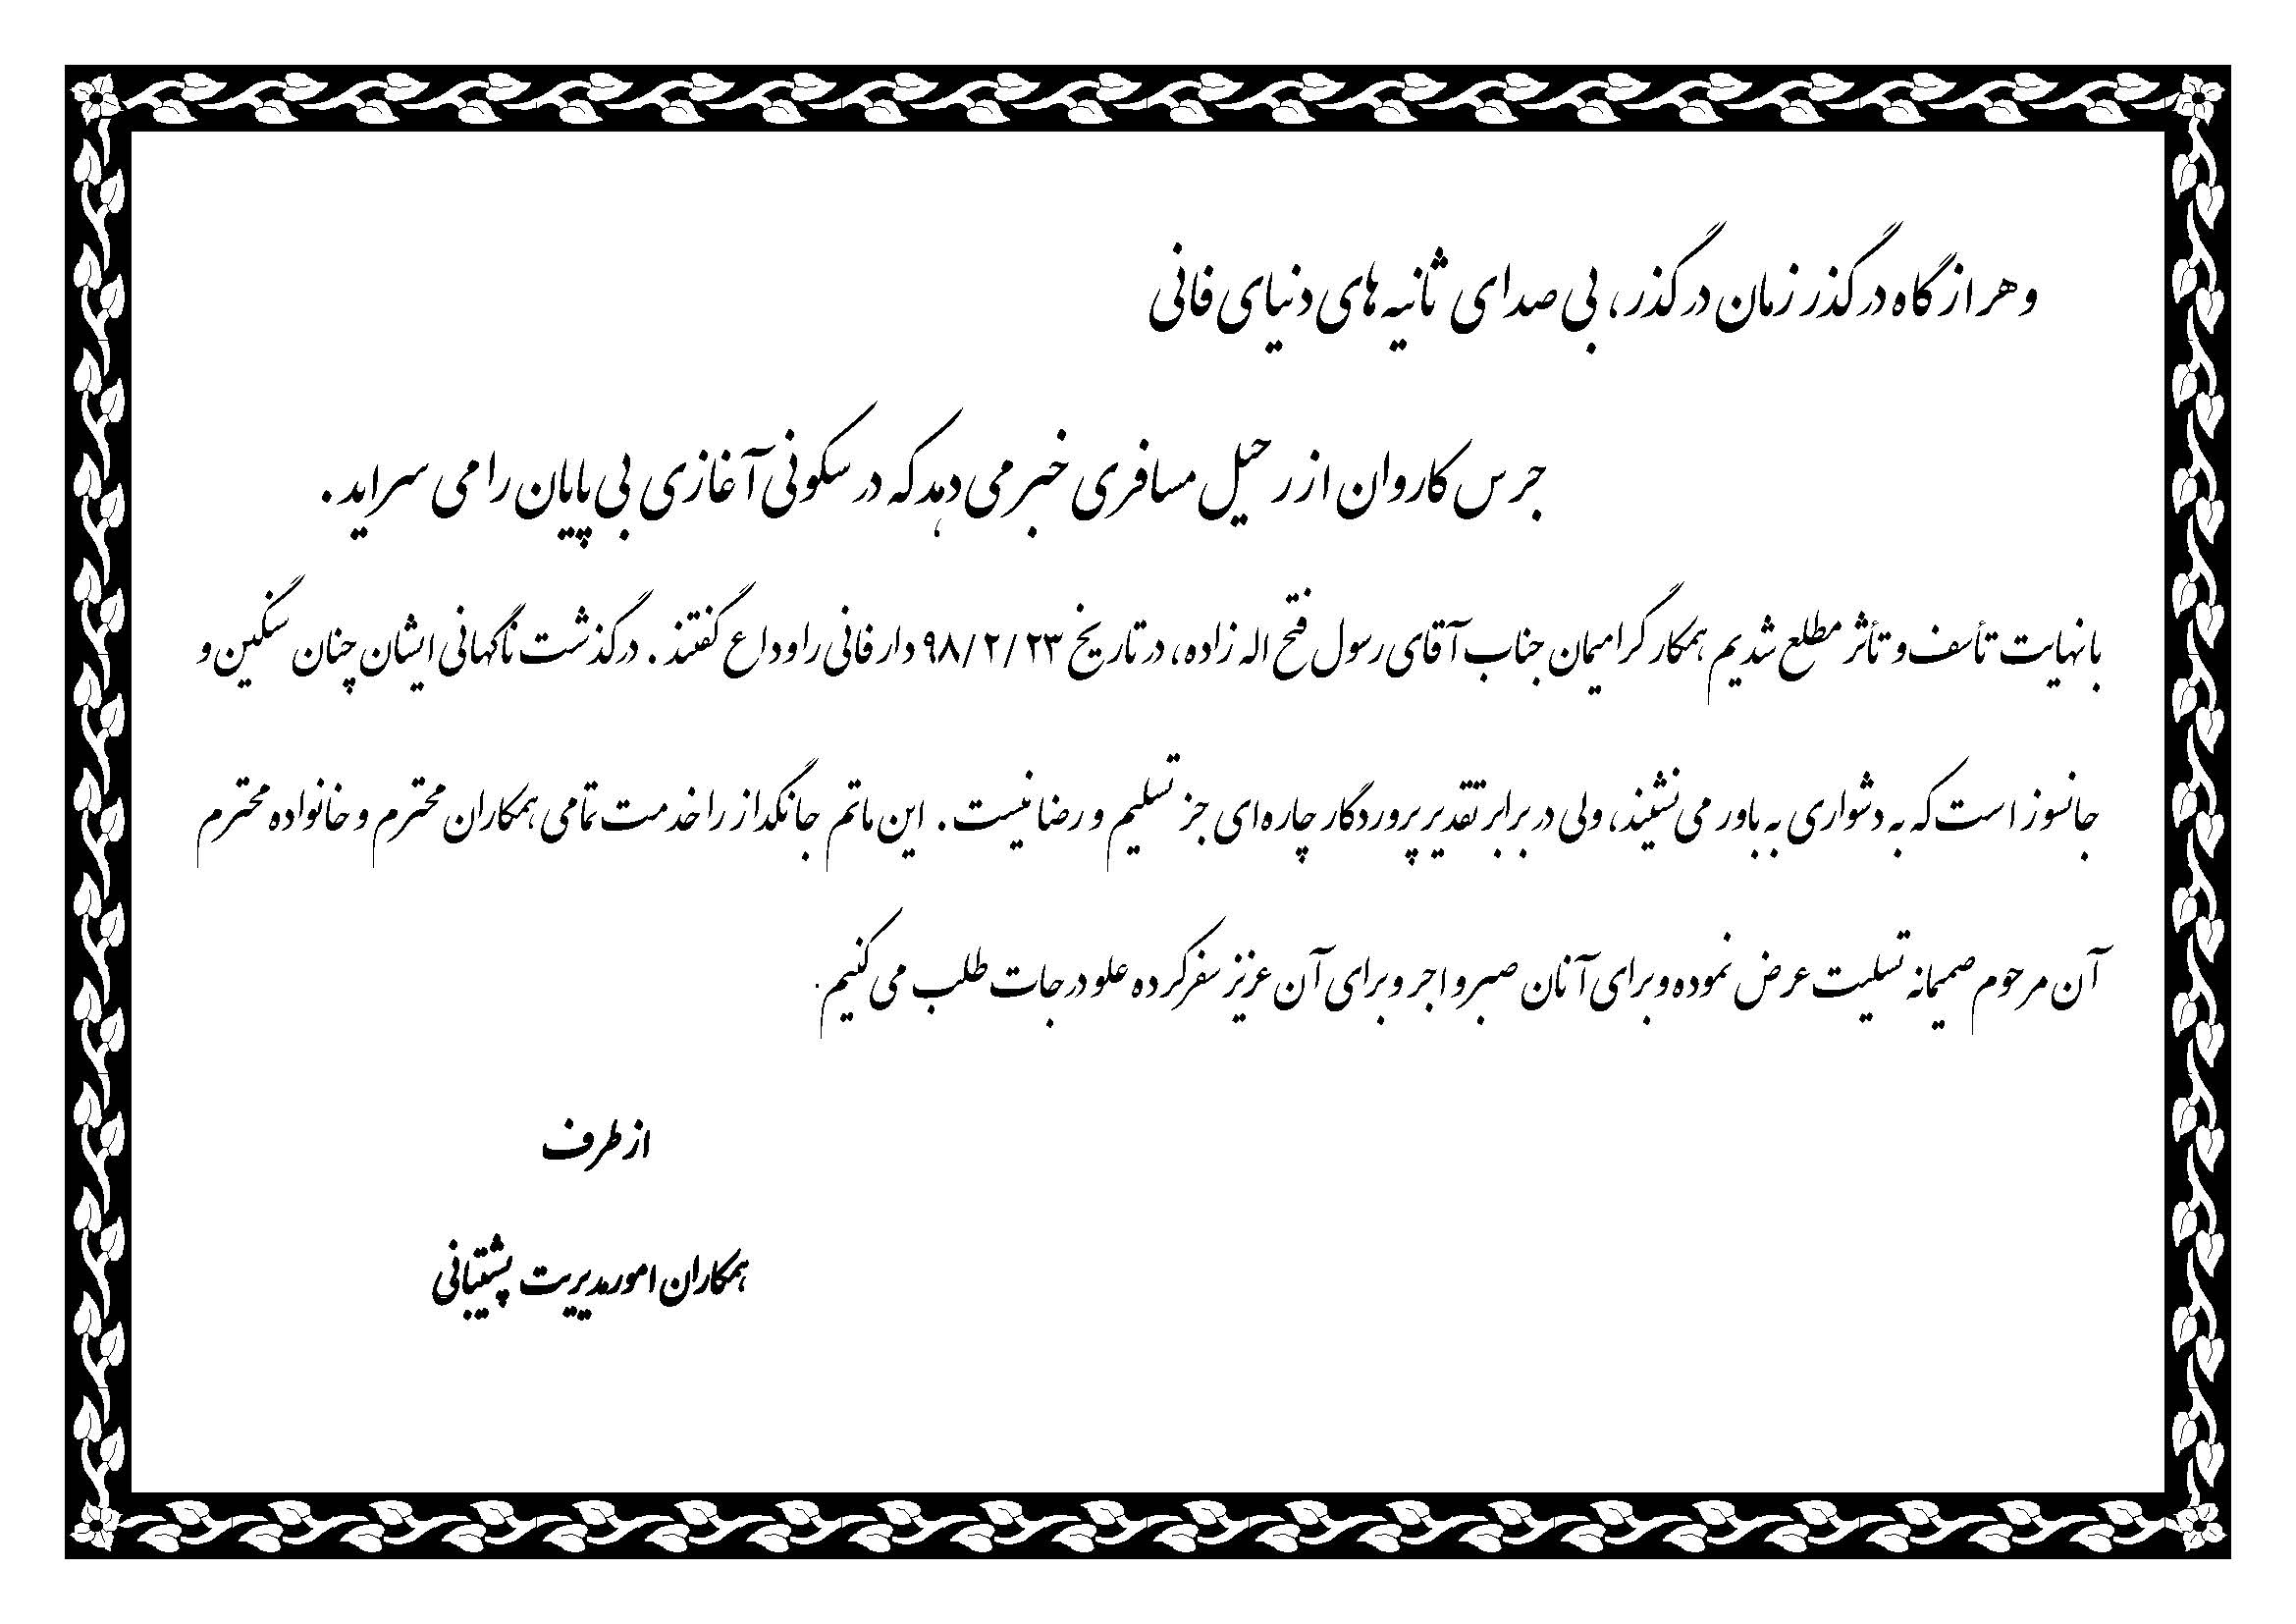 و هر از گاه در گذر زمان در گذر، بی صدای ثانیه های دنیای فانی
جرس کاروان از رحیل مسافری خبر می دهد که در سکونی آغازی بی پایان را می سراید .
با نهایت تأسف و تأثر مطلع شدیم همکار گرامیمان جناب آقای رسول فتح اله زاده، در تاریخ ۹۸/۲/۲۳ دار فانی را وداع گفتند . درگذشت ناگهانی ایشان چنان سنگین و
جانسوز است که به دشواری به باور می نشیند، ولی در برابر تقدیر پروردگار چاره ای جز تسلیم و رضا نیست . این ماتم جانگداز را خدمت تمامی همکاران محترم و خانواده محترم
آن مرحوم صمیمانه تسلیت عرض نموده و برای آنان صبر و اجر و برای آن عزیز سفر کرده علو درجات طلب می کنیم.
از طرف
همکاران امور مدیریت پشتیبانی